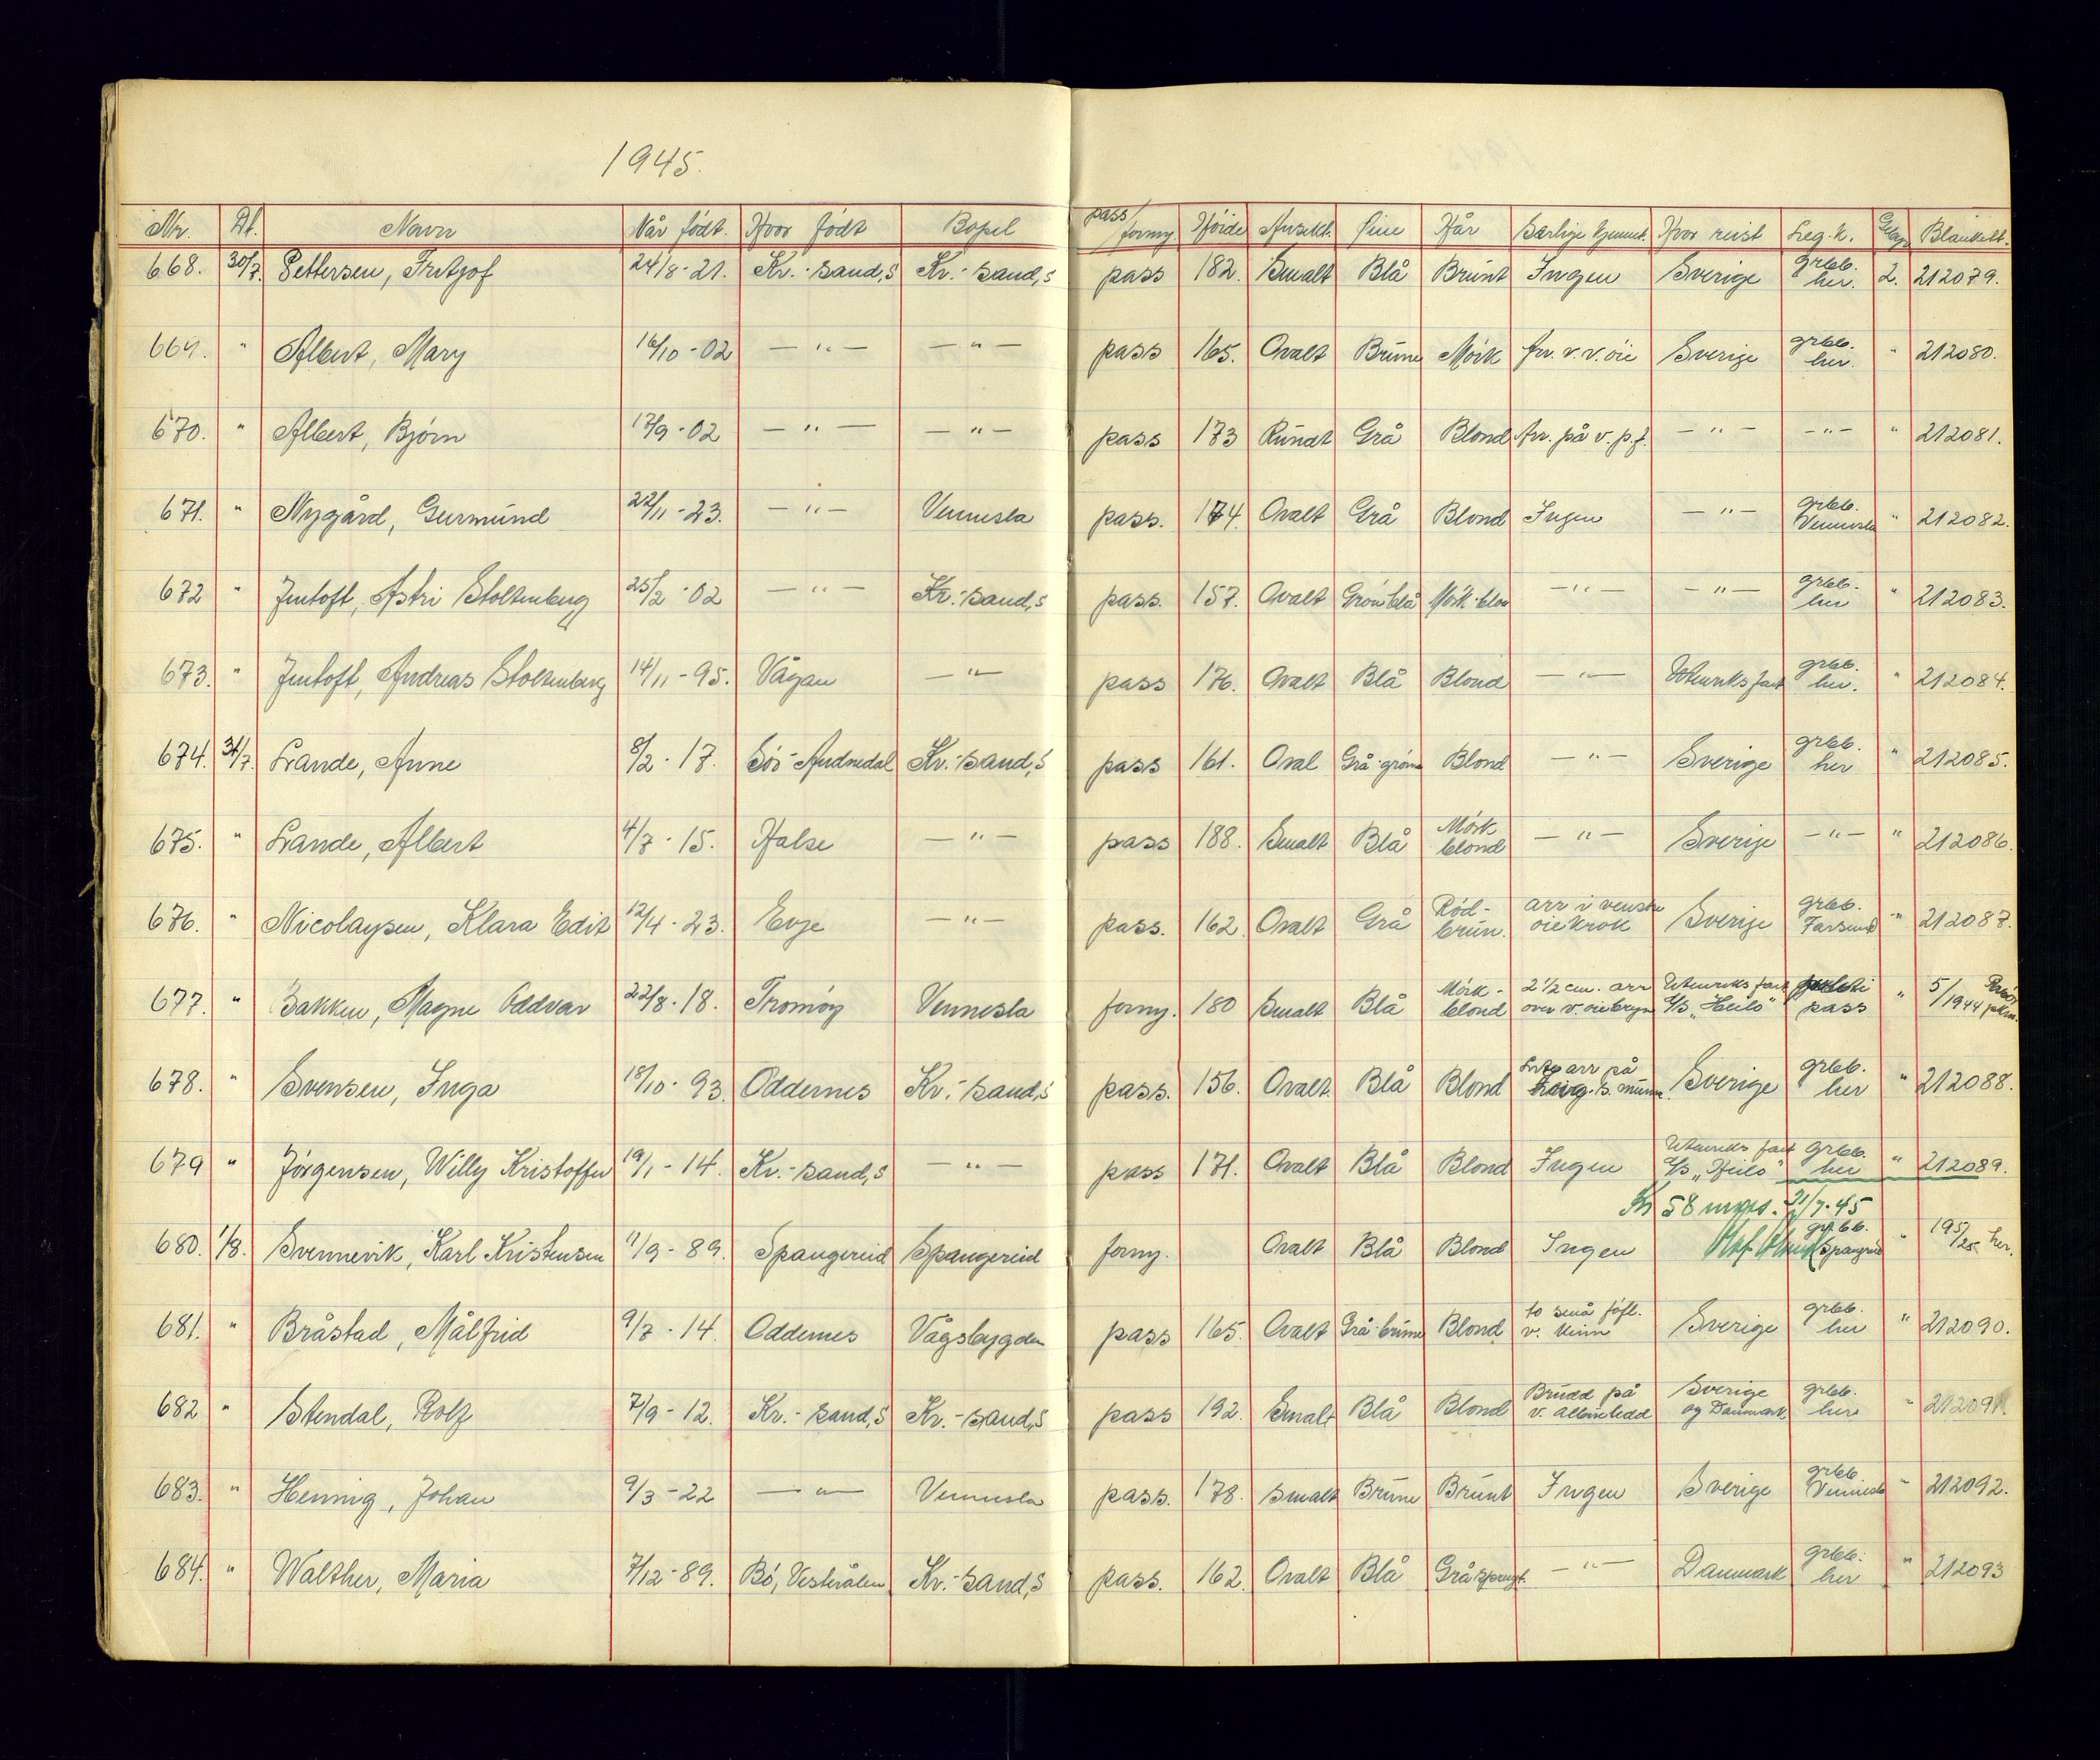 1945.
Nr. Dt. Navn Når født. Hvor født Bopel pass/forny Høide Ansikt. Øine Hår Særlige kjennet. Hvor reist Leg.k. Gebyr Blankett.
668. 30/7. Pettersen, Fritjof 24/8-21. Kr.-sand,S Kr.-sand,S pass 182. Smalt Blå Brunt Ingen Sverige grbb. her. 2. 212079.
669. " Albert, Mary 16/10-02 — " — — " — pass 165. Ovalt Brune Mørk Arr. v. v. øie Sverige grbb. her. " 212080.
670. " Albert, Bjørn 17/9-02 — " — — " — pass 173 Rundt Grå Blond Arr. på v. p.f. — " — — " — " 212081.
671. " Nygård, Gurmund 22/11-23. — " — Vennesla pass. 174. Ovalt Grå Blond Ingen — " — grbb. Vennesla " 212082.
672 " Jentoft, Astri Stoltenberg 25/2-02 — " — Kr.-sand,S pass. 157. Ovalt Grønblå Mørk-blon — " — — " — grbb. her " 212083.
673. " Jentoft, Andreas Stoltenberg 14/11-95. Vågan — " — pass 176. Ovalt Blå Blond — " — Utenriksfart grbb. her. " 212084.
674. 31/7. Lande, Anne 8/2-17. Sør-Audnedal Kr.-sand,S pass 161. Oval Grå-grøne Blond — " — Sverige grbb. her " 212085.
675. " Lande, Albert 4/7-15. Halse — " — pass 188. Smalt Blå Mørk blond — " — Sverige — " — " 212086.
676. " Nicolaysen, Klara Edit 12/4-23. Evje — " — pass. 162. Ovalt Grå Rød-brun. arr i venstre øiekrok Sverige grbb. Farsund " 212087.
677. " Bakken, Magne Oddvar 22/8-18. Tromøy Vennesla forny. 180 Smalt Blå Mørk-blond 2 1/2 cm. arr over v. øiebryn Utenriksfart D/S „Heilo" pass " 5/1944
678. " Svensen, Inga 18/10-93. Oddernes Kr.-sand,S pass. 156. Ovalt. Blå Blond Lite arr på s. munn. Sverige grbb. her " 212088.
679 " Jørgensen, Willy Kristoffer 19/1-14. Kr.-sand,S — " — pass 171. Ovalt Blå Blond Ingen Utenriks fart D/S „Heilo" grbb. her " 212089.
Kr 58 31/7-45
680. 1/8. Svennevik, Karl Kristensen 11/9-89. Spangereid Spangereid forny. Ovalt Blå Blond Ingen grbb. Spangreid " 195/25 her.
681. " Bråstad, Målfrid 9/7-14. Oddernes Vågsbygden pass 165. Ovalt Grå-brune Blond to små føfl. v. kinn Sverige grbb. her " 212090.
682 " Stendal, Rolf 7/9-12. Kr.-sand,S Kr.-sand,S pass 192. Smalt Blå Blond Brudd på v. albueledd Sverige og Danmark grbb. her " 212091.
683. " Hennig, Johan 9/3-22 — " — Vennesla pass. 178. smalt Brune Brunt Ingen Sverige grbb. Vennesla " 212092.
684. " Walther, Maria 7/12-89. Bø, Vesterålen Kr.-sand,S pass. 162. Ovalt Blå Gråsprengt. — " — Danmark grbb. her " 212093